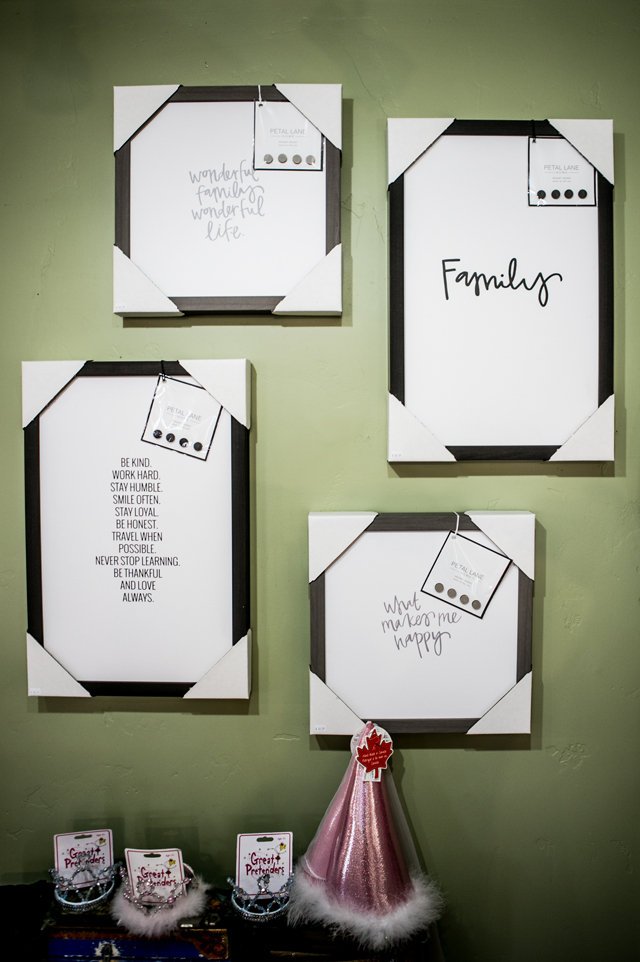 PETAL LANE
wonderful
family
wonderful
life.
PETAL LANE
Family
PETAL LANE
BE KIND.
WORK HARD.
STAY HUMBLE.
SMILE OFTEN.
STAY LOYAL.
BE HONEST.
TRAVEL WHEN
POSSIBLE.
NEVER STOP LEARNING.
BE THANKFUL
AND LOVE
ALWAYS.
PETAL LANE
what
makes me
happy
Great
Pretenders
Great
Pretenders
Great
Pretenders